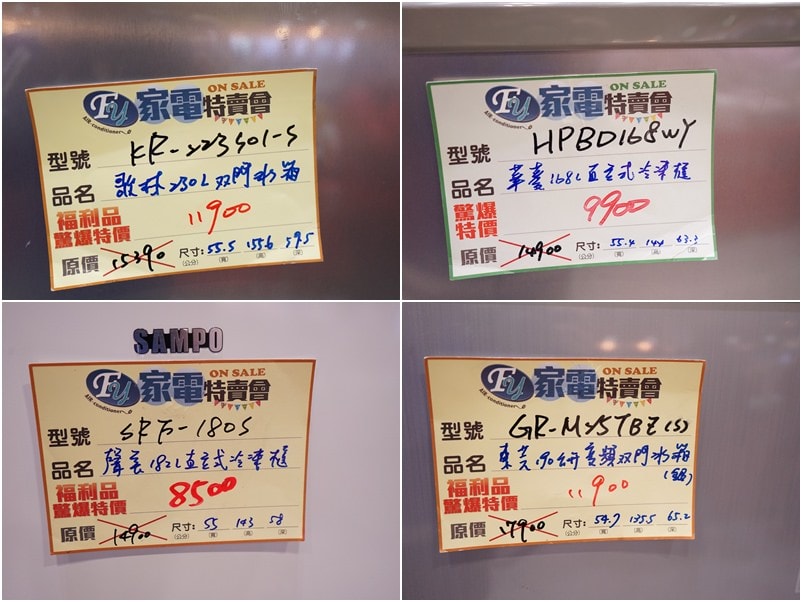 ON SALE
Fy 家電特賣會
Air conditioner
型號 KR-223S01-S
品名 歌林230L双門冰箱
福利品
驚爆特價 11900
原價 15390 尺寸:(公分) 55.5(寬) 155.6(高) 59.5(深)
ON SALE
Fy 家電特賣會
Air conditioner
型號 HPBD168WY
品名 華菱168L直立式冷凍櫃
驚爆
特價 9900
原價 14900 尺寸:(公分) 55.4(寬) 144(高) 63.3(深)
SAMPO
ON SALE
Fy 家電特賣會
Air conditioner
型號 SRF-180S
品名 聲寶182L直立式冷凍櫃
福利品
驚爆特價 8500
原價 14900 尺寸:(公分) 55(寬) 143(高) 58(深)
ON SALE
Fy 家電特賣會
Air conditioner
型號 GR-M25TBZ(S)
品名 東芝190公升變頻双門冰箱
(銀)
福利品
驚爆特價 11900
原價 17900 尺寸:(公分) 54.7(寬) 135.5(高) 65.2(深)